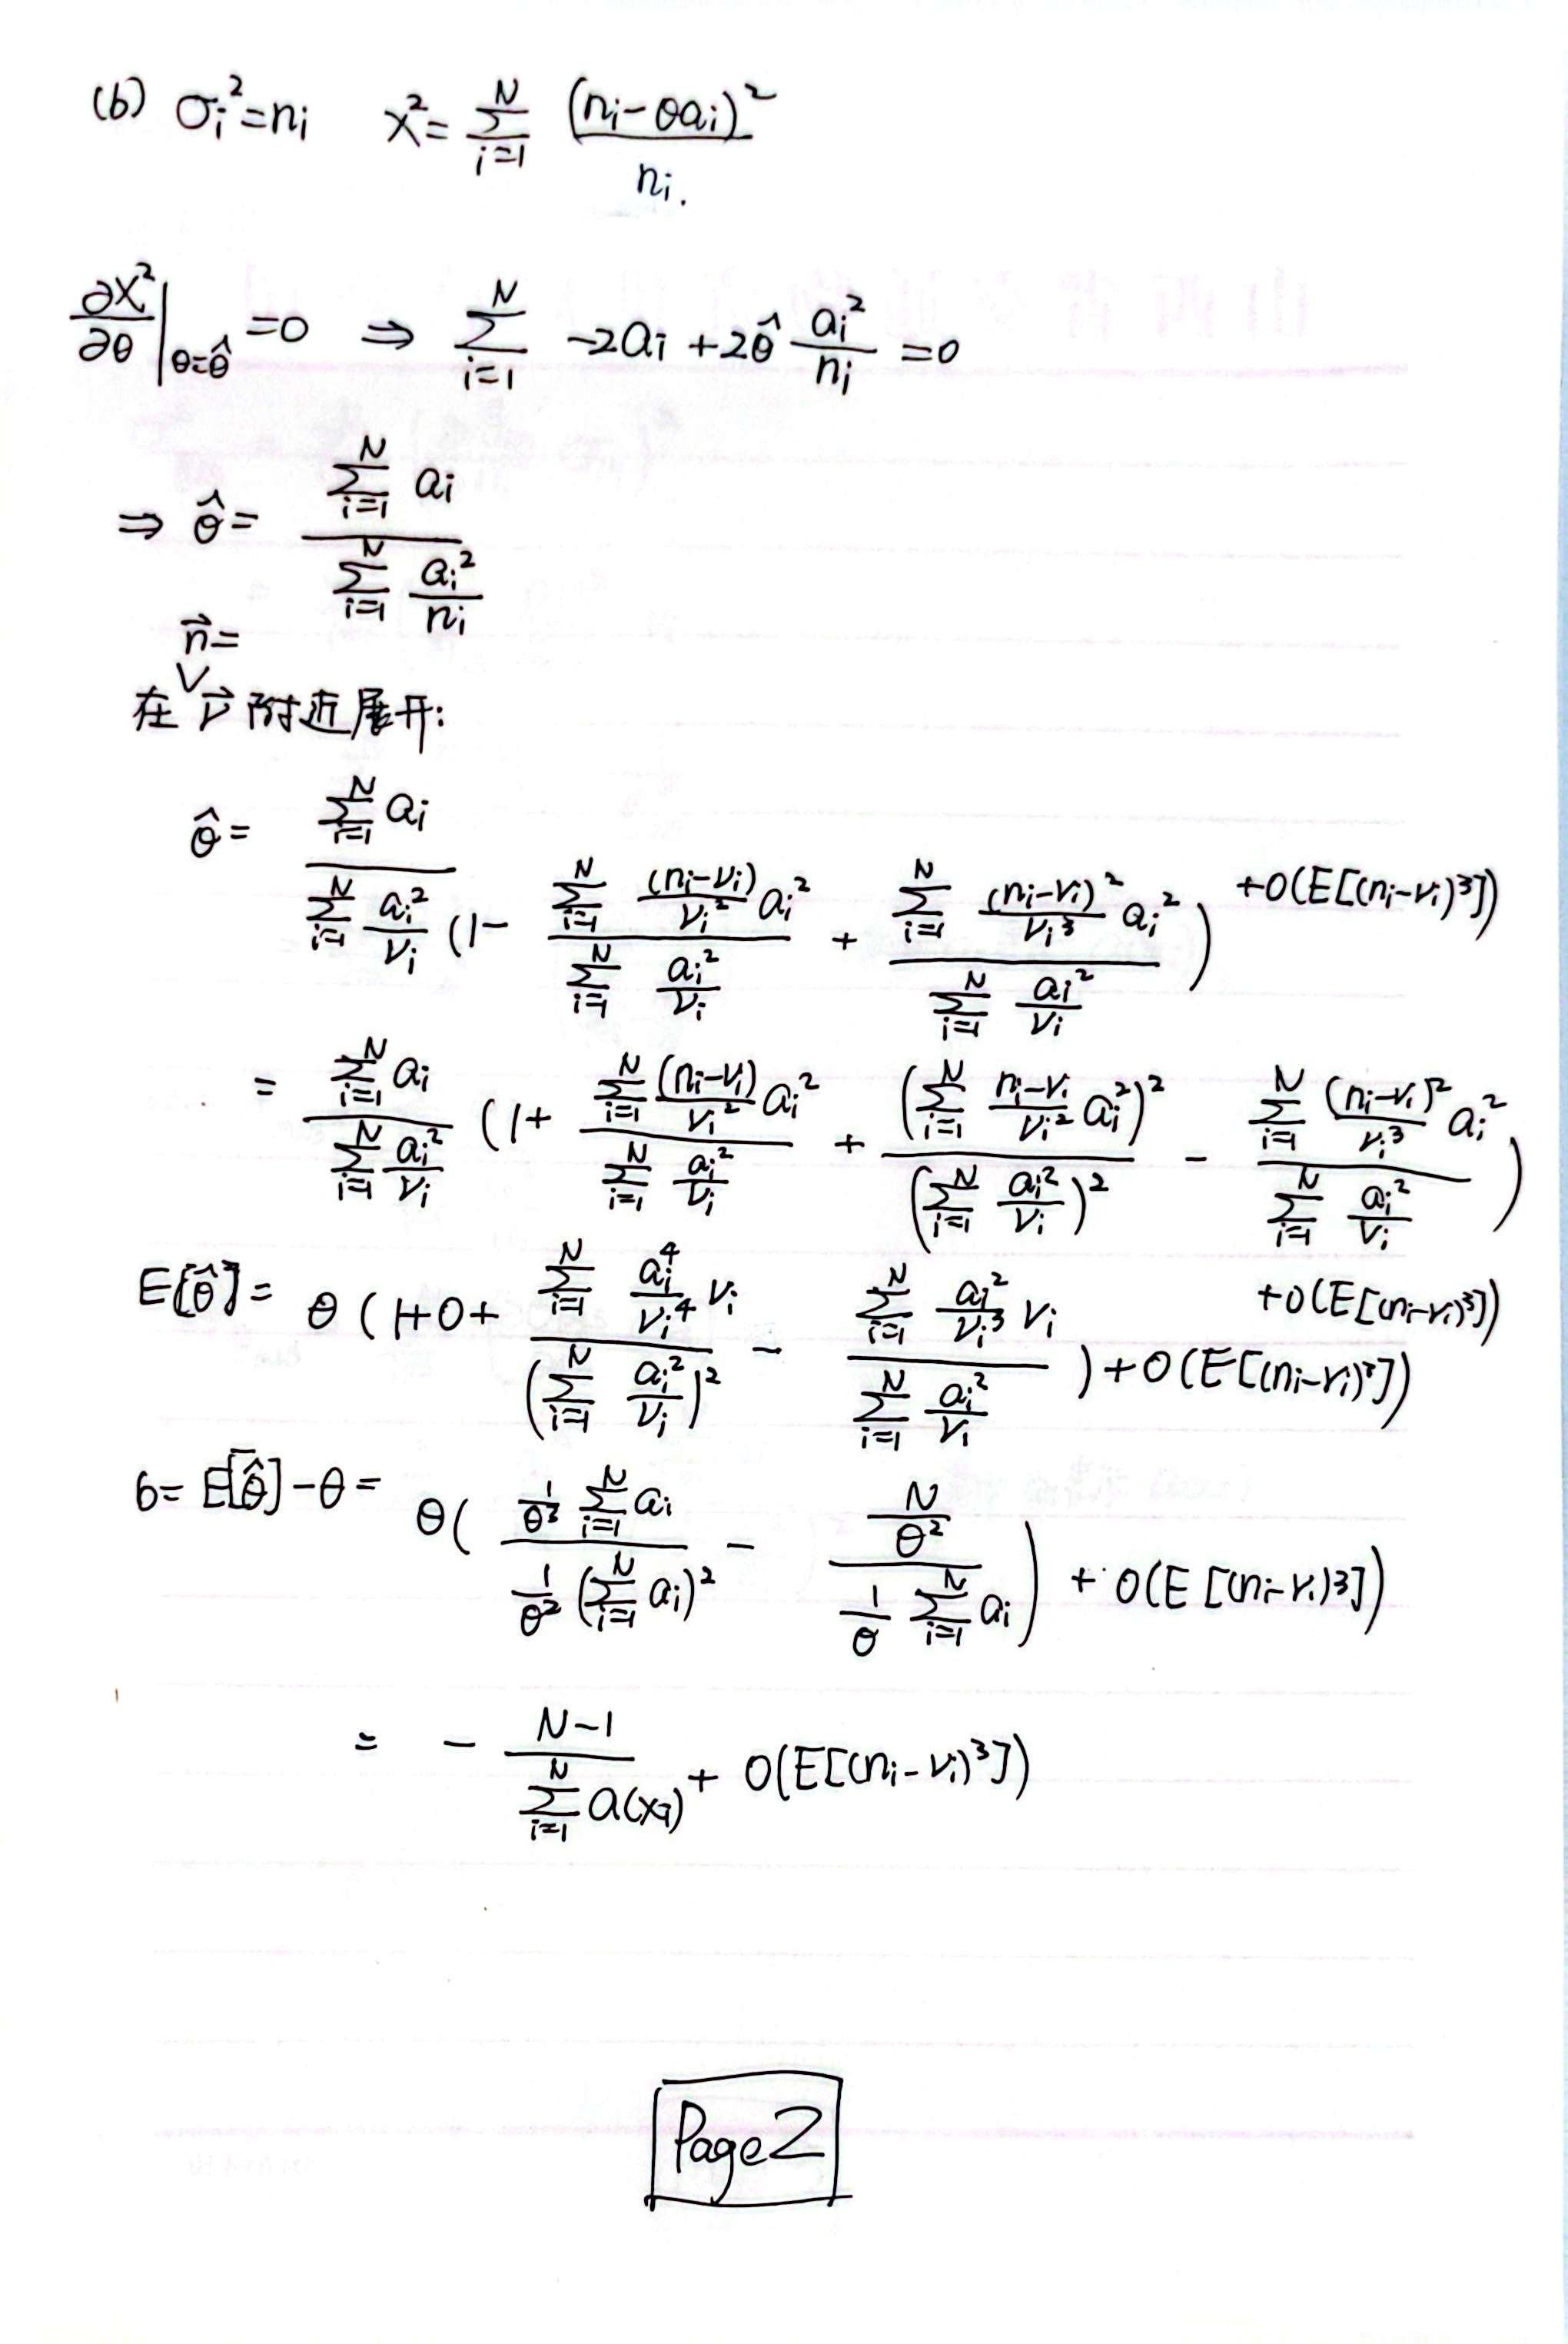 (b) σᵢ²=nᵢ χ²=∑_{i=1}^{N} (nᵢ-θaᵢ)²/nᵢ.
∂χ²/∂θ|_{θ=θ̂}=0 ⇒ ∑_{i=1}^{N} -2aᵢ+2θ̂ aᵢ²/nᵢ=0
⇒ θ̂= ∑_{i=1}^{N} aᵢ / ∑_{i=1}^{N} aᵢ²/nᵢ
n⃗=
在 ν⃗ 附近展开:
θ̂= ∑_{i=1}^{N} aᵢ / (∑_{i=1}^{N} aᵢ²/νᵢ (1- (∑_{i=1}^{N} (nᵢ-νᵢ)/νᵢ² aᵢ²)/(∑_{i=1}^{N} aᵢ²/νᵢ) + (∑_{i=1}^{N} (nᵢ-νᵢ)²/νᵢ³ aᵢ²)/(∑_{i=1}^{N} aᵢ²/νᵢ))) +O(E[(nᵢ-νᵢ)³])
= (∑_{i=1}^{N} aᵢ)/(∑_{i=1}^{N} aᵢ²/νᵢ) (1+ (∑_{i=1}^{N} (nᵢ-νᵢ)/νᵢ² aᵢ²)/(∑_{i=1}^{N} aᵢ²/νᵢ) + (∑_{i=1}^{N} (nᵢ-νᵢ)/νᵢ² aᵢ²)²/(∑_{i=1}^{N} aᵢ²/νᵢ)² - (∑_{i=1}^{N} (nᵢ-νᵢ)²/νᵢ³ aᵢ²)/(∑_{i=1}^{N} aᵢ²/νᵢ))
+O(E[(nᵢ-νᵢ)³])
E[θ̂]= θ(1+0+ (∑_{i=1}^{N} aᵢ⁴/νᵢ⁴ νᵢ)/(∑_{i=1}^{N} aᵢ²/νᵢ)² - (∑_{i=1}^{N} aᵢ²/νᵢ³ νᵢ)/(∑_{i=1}^{N} aᵢ²/νᵢ))+O(E[(nᵢ-νᵢ)³])
b= E[θ̂]-θ= θ( (1/θ³ ∑_{i=1}^{N} aᵢ)/(1/θ² (∑_{i=1}^{N} aᵢ)²) - (N/θ²)/(1/θ ∑_{i=1}^{N} aᵢ)) + O(E[(nᵢ-νᵢ)³])
= - (N-1)/(∑_{i=1}^{N} a(xᵢ)) + O(E[(nᵢ-νᵢ)³])
Page2